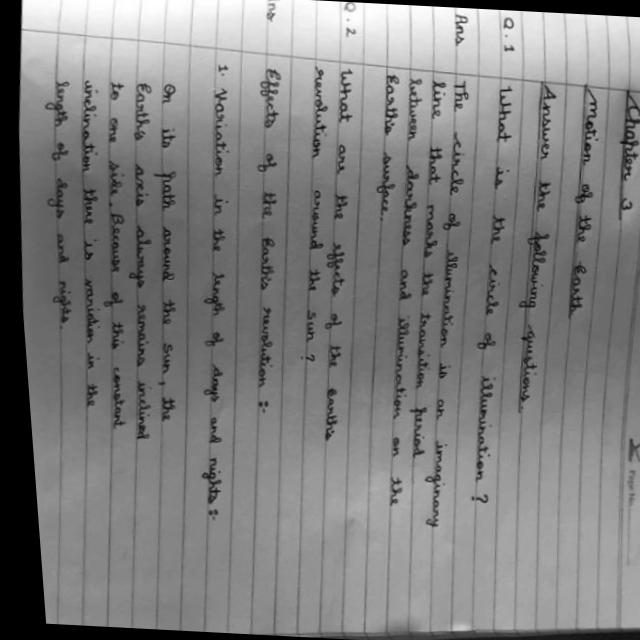 Page No.
Chapter 3
Motion of the Earth
Answer the following qustions.
Q.1 What is the circle of illumination ?
Ans The circle of illumination is an imaginary
line that marks the transition period
between darkness and illumination on the
Earths surface.
Q.2 What are the effects of the Earths
revolution around the sun ?
Ans Effects of the Earths revolution :-
1. Variation in the length of days and nights :-
On its path around the sun, the
Earths axis always remains inclined
to one side. Because of this constant
inclination there is variation in the
length of days and nights.